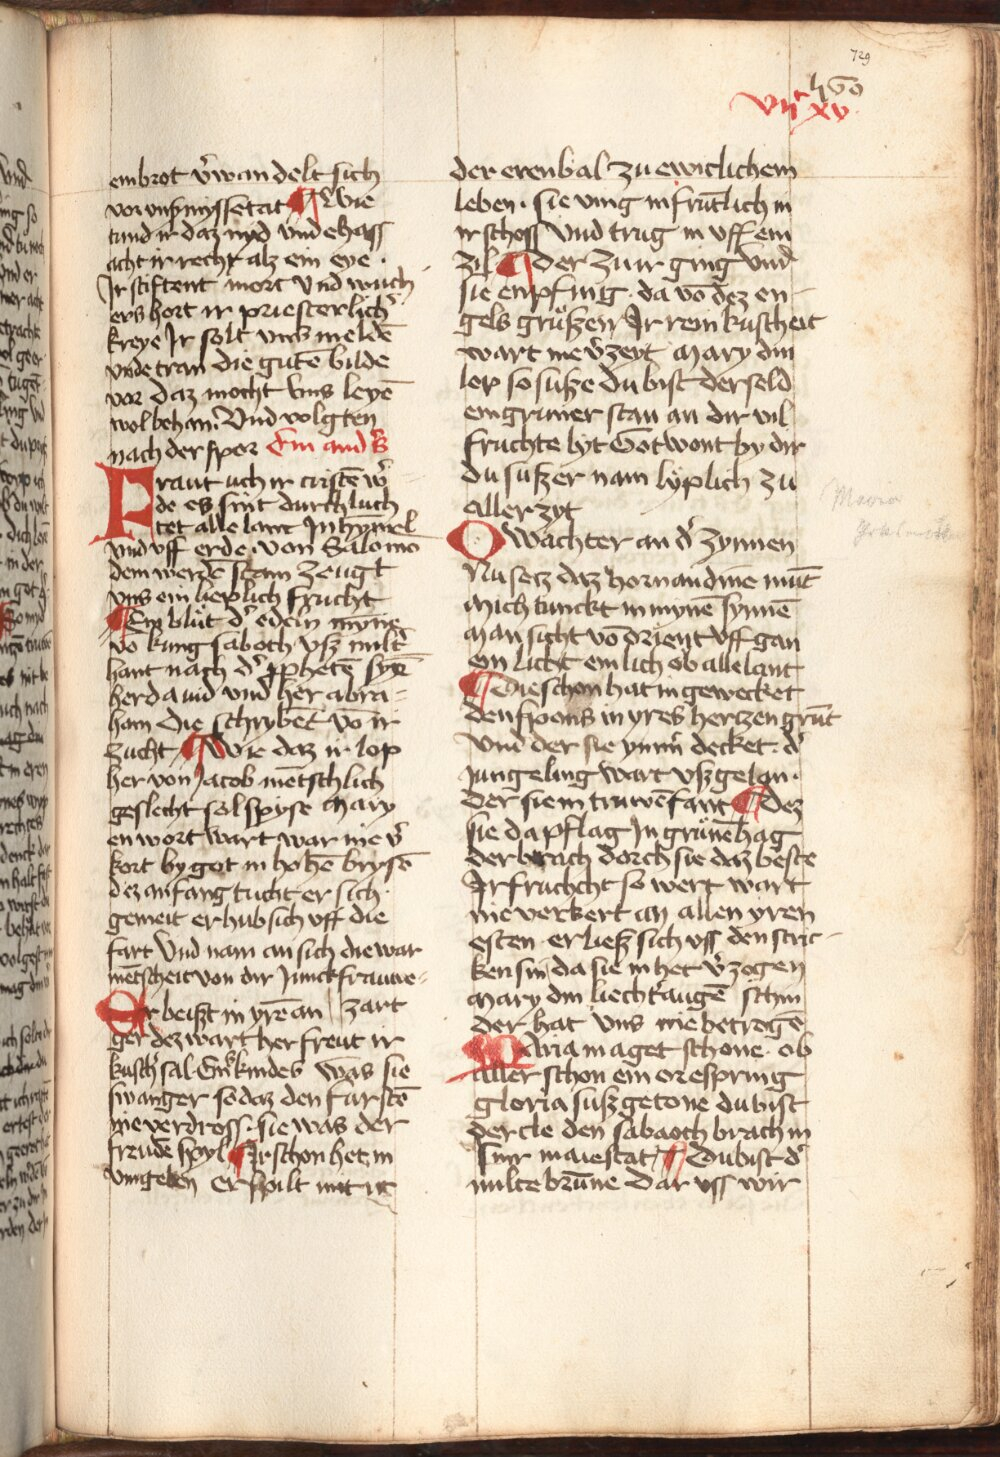 729
vnͨ xv
embrot v̾wandelt sich
vor vnß myssetat ¶ Wie
tund ir daz nyd vnd ehaß
acht ir recht alz ein eye ·
Ir stiftent mort vnd wuch
ers hort ir priesterlich̾
kreye Ir solt vns meldē
vnde tran die gutē bilde
vor daz mocht vns leyē
wol behan · Vnd volgten
nach der spor Ein and̾s
Fraut uch ir cristē w̾
de es sint durchluch
tet alle lant In hymel
vnd vff erde · von Salomo
dem werdē stam zeugt
vns ein lieplich frucht
¶ Ein blüt d̾ edeln myne
vō kung saboth vsz milt̾
hant nach d̾ ꝓphetē syē
her dauid vnd her abra-
ham die schrybēt vō ir
zucht ¶ Wie daz ir lop
her von Jacob mētschlich
geslecht sol spyse Mary
en wort wart war nie v̾
kort by got in hohē brysē
dez anfang tucht er sich
gemeit er hub sich vff die
fart Vnd nam an sich die war
mētscheit von dir Junckfrauwe-
Er beißt in yrē an zart
ger dez wart her freut ir
kusch̾ sal Ein kindes was sie
swanger so daz den furstē
nie verdross · sie was der
freudē spyl ¶ Ir schon het in
vmgeben er spilt mit ir
der erenbal zu ewiclichem
leben · sie ving in frūtlich in
ir schoss Vnd trug in vff ein
zil ¶ Der zu ir ging vnd
sie enpfing · da vō dez en-
gels grüßen Ir rein kuscheit
wart nie v̾zeyt Mary din
lop so suße du bist der seld
ein gruner stan an dir vil
fruchte lyt Got wont by dir
du sußer nam lyplich zu
aller zyt
O Wachter an d̾ zynnen
Nu setz daz horn an dine mūt
Mich dunckt in mynē synnē
Man sicht vō orient vff gan
ein licht ein lich ob alle lant
¶ Die schon hat in gewecket
den spons in yres hertzen grūt
Vnd der sie ynnn̄ decket · d̾
Jungeling wart vsz gelan ·
der sie in truwē fant ¶ Dez
sie da pflag In grünē hag
der brach dorch sie daz beste
Ir fruchcht so wert wart
nie verkert an allen yren
esten · er ließ sich vff den stric-
ken sin da sie in het v̾zogen
Mary din liecht̾ augē schin
der hat vns nie betrogē
Maria maget schone · ob
aller schon ein orespring
gloria suß getone du bist
der cle den sabaoth brach in
siner maiestat ¶ Du bist d̾
milte brūne dar vss wir
Maria